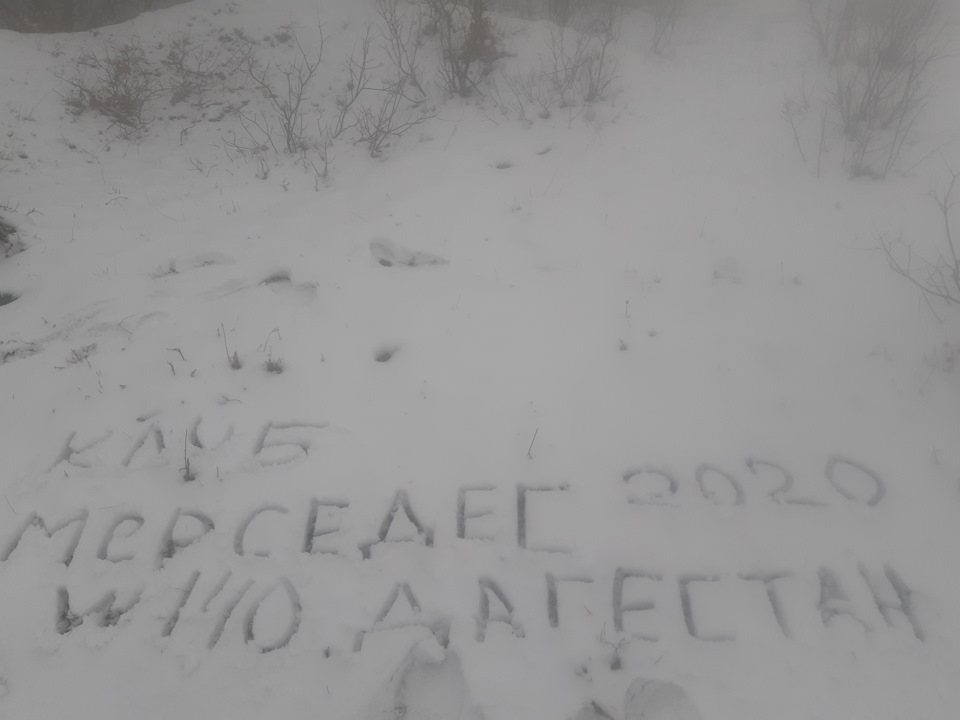 КЛУБ
МЕРСЕДЕС 2020
W140. ДАГЕСТАН